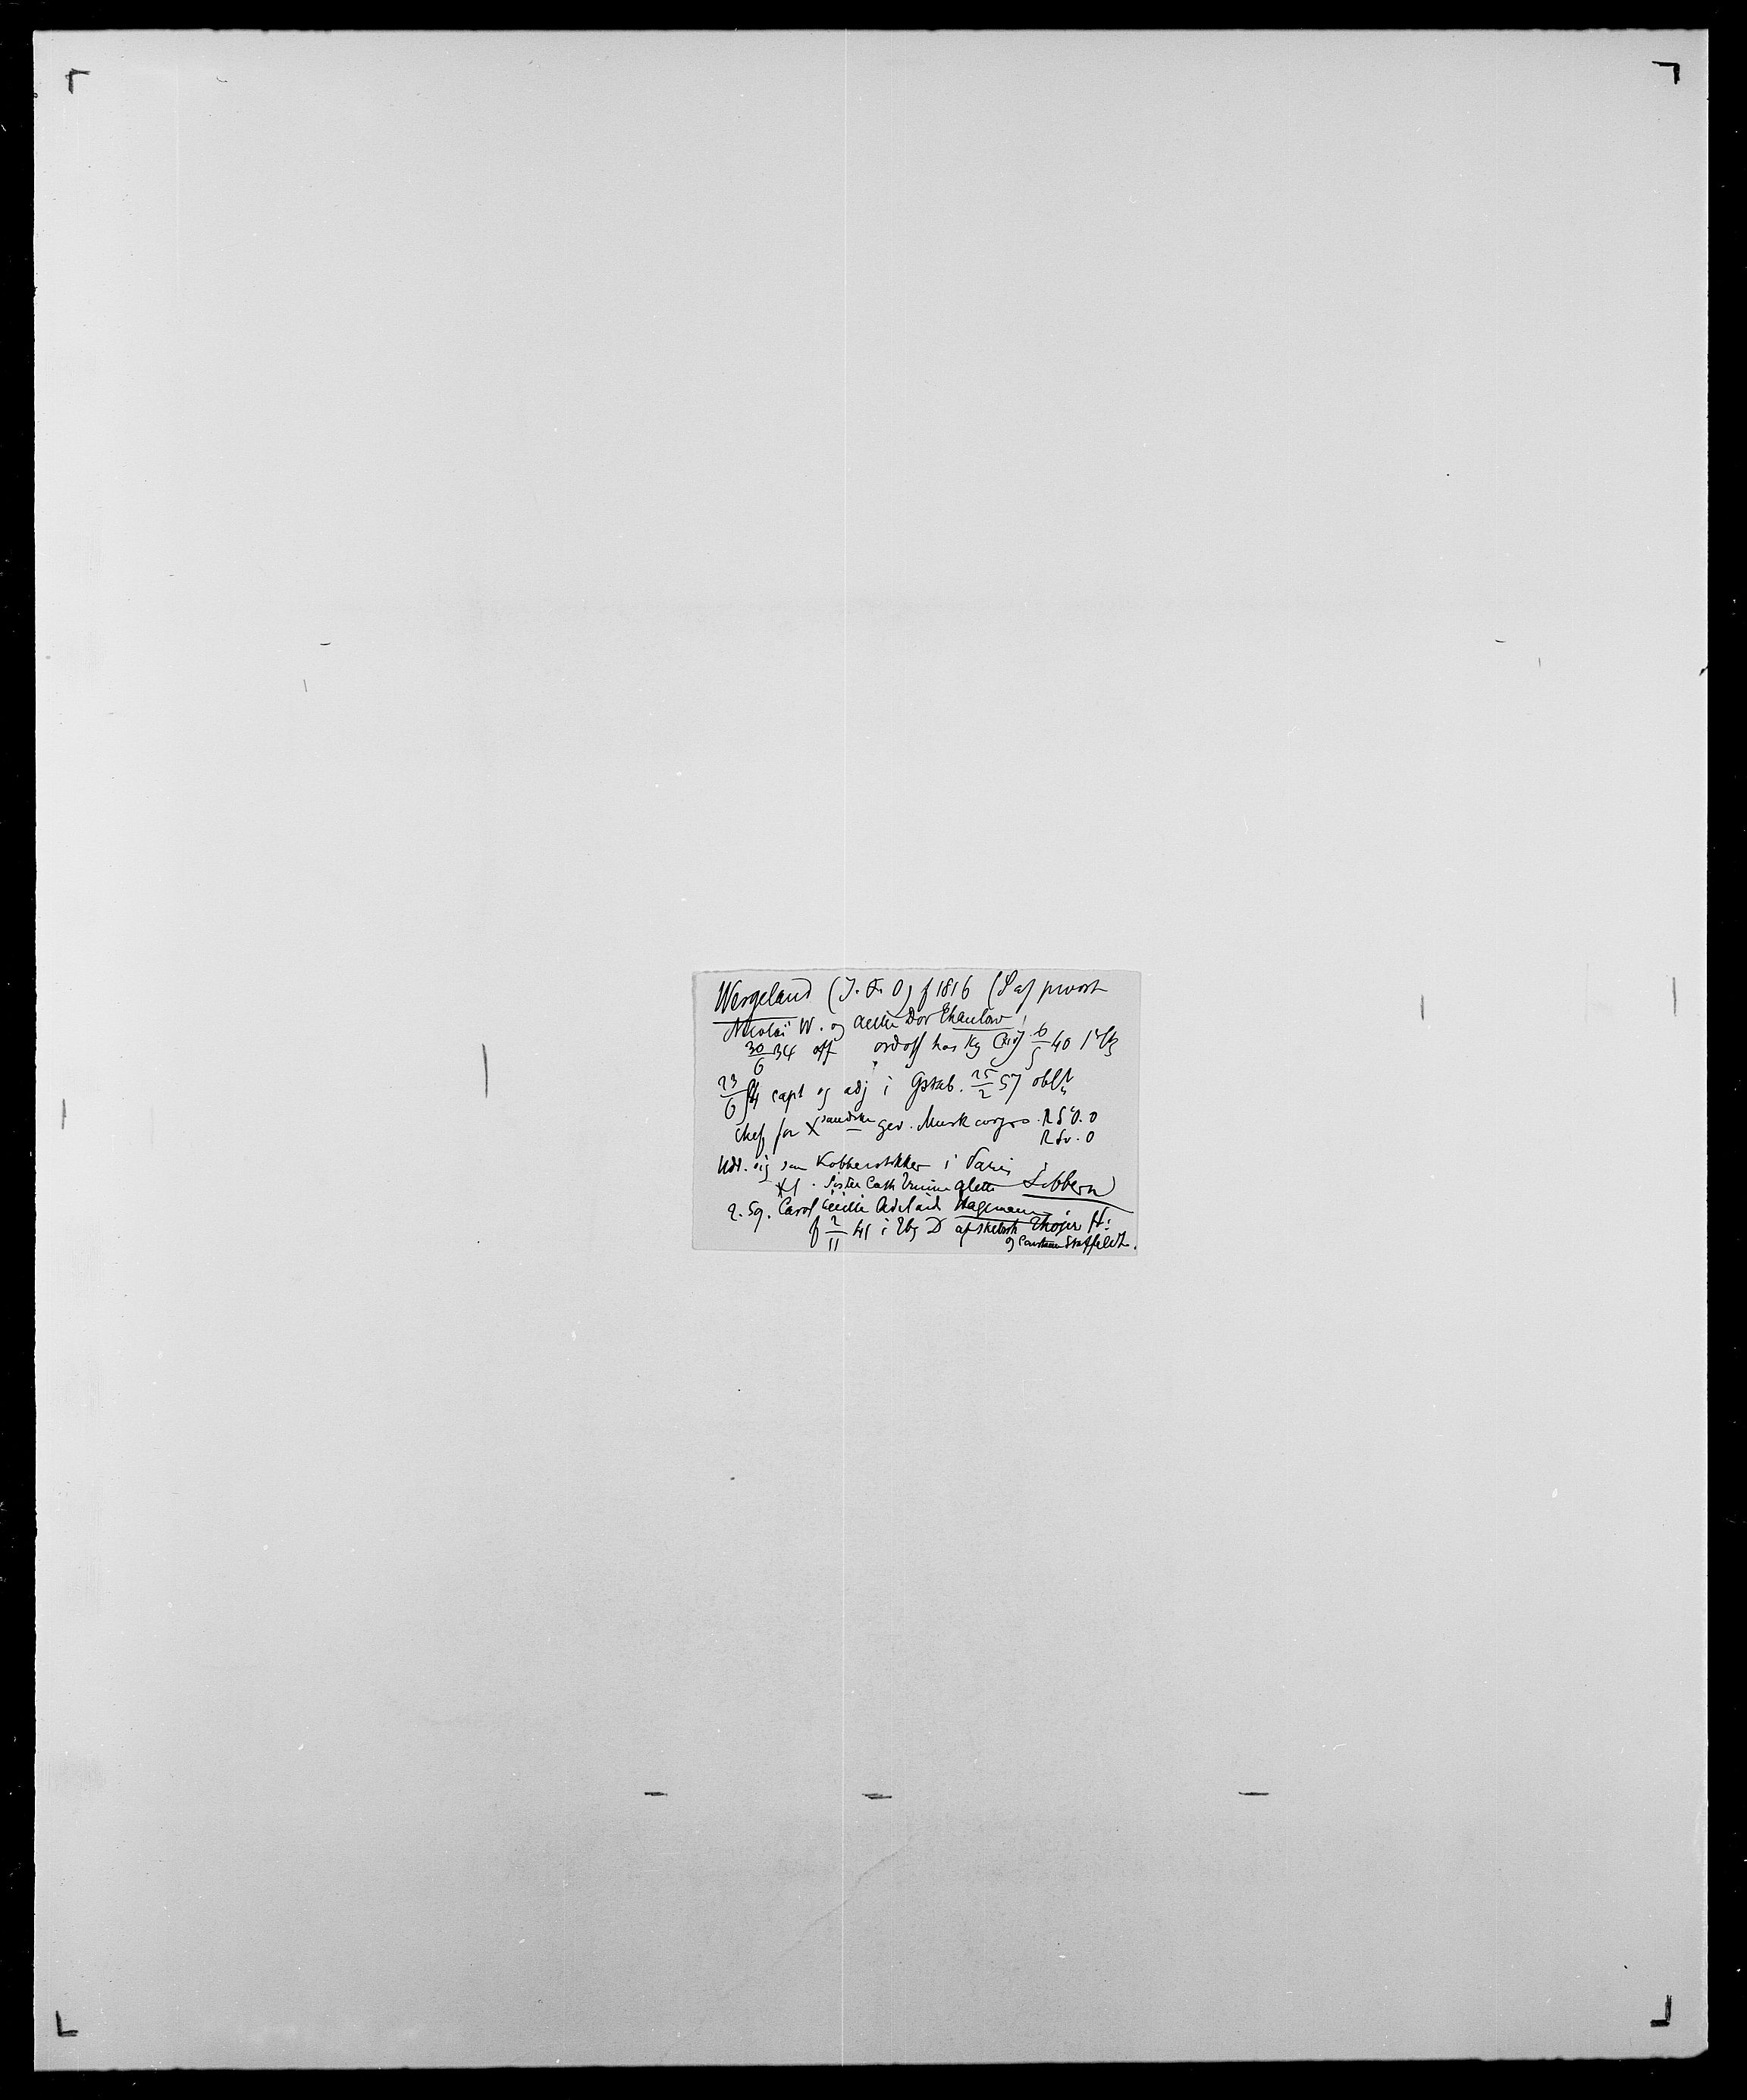 Wergeland (J. F. O) f 1816 (S af provst
Nicolai W. og Alette Dor Thaulow!
30/6 34 off ordoff hos Kg 6/5 40
23/6 capt og adj i Gstab. 25/2 57 oblt
chef for Xsandske gev. Musk corps. R St O. O
R Sv. O
Udd. sig som Kobberstikker i Paris
X1. Sister Cath Alette Sibbern
2. 59. Carol Cecilie Adelaid Hagemann
f 2/11 41 i Tbg D af Thojer H:
og Constance Staffeldt.